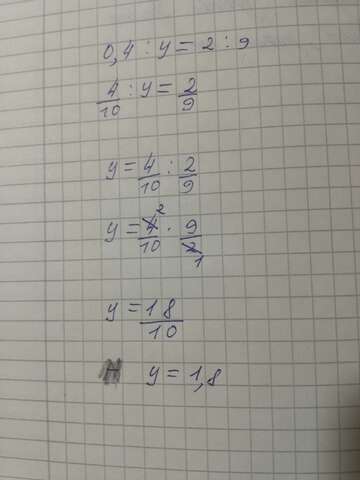 0,4 : y = 2 : 9
4/10 : y = 2/9
y = 4/10 : 2/9
y = 4/10 2 · 9/2 1
y = 18/10
y = 1,8